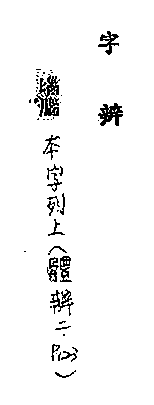 字辨
本字列上(體辨二·P123)